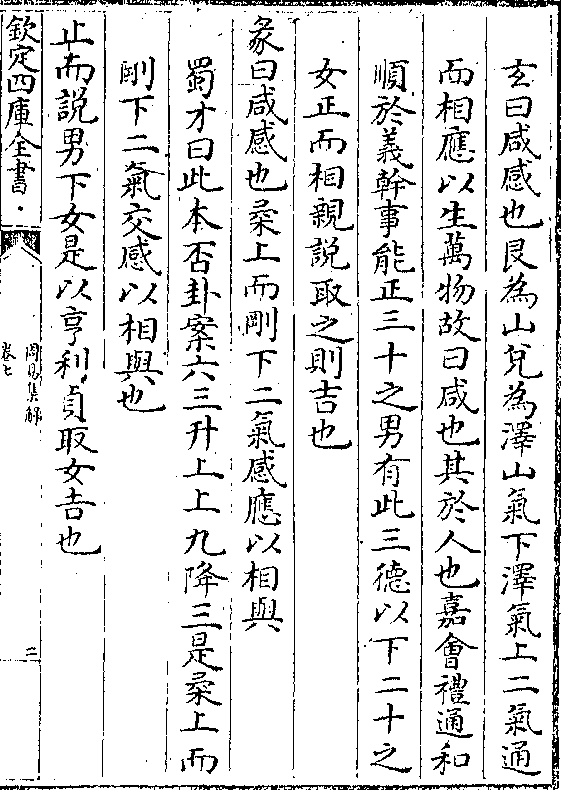 玄曰咸感也艮為山兌為澤山氣下澤氣上二氣通
而相應以生萬物故曰咸也其於人也嘉會禮通和
順於義幹事能正三十之男有此三德以下二十之
女正而相親說取之則吉也
彖曰咸感也柔上而剛下二氣感應以相與
蜀才曰此本否卦案六三升上上九降三是柔上而
剛下二氣交感以相與也
止而說男下女是以亨利貞取女吉也
欽定四庫全書
周易集解
卷七
二